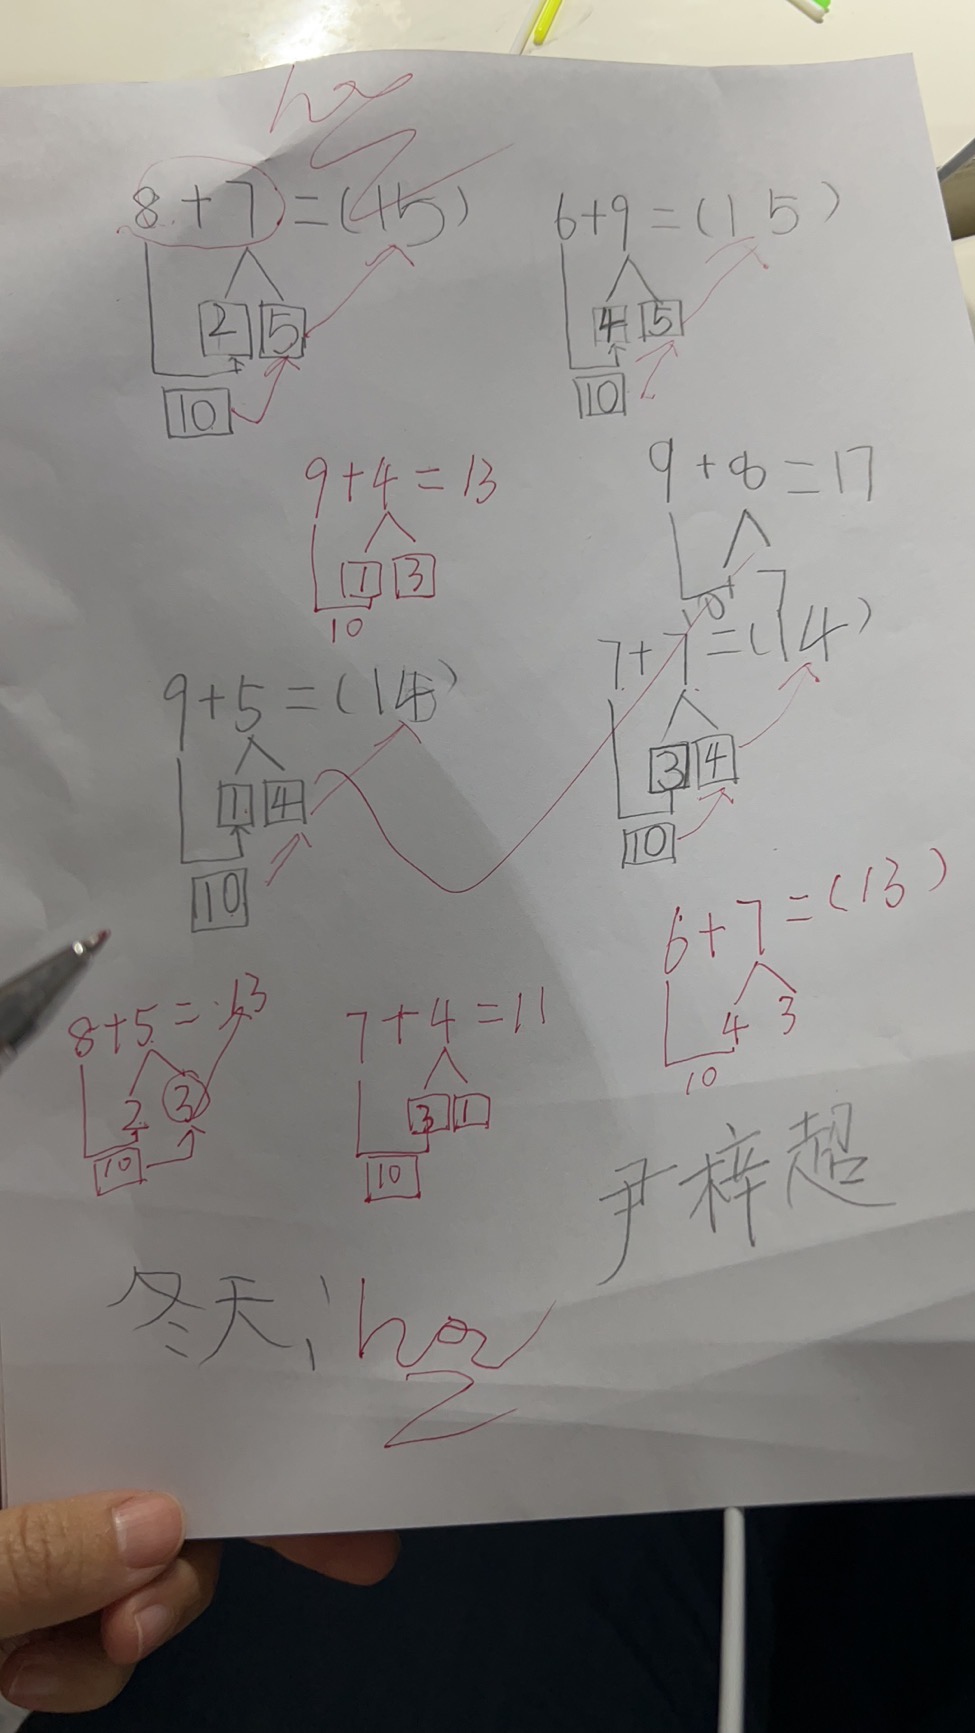 8+7=(15)
2 5
10
6+9=(15)
4 5
10
9+4=13
1 3
10
9+8=17
1 7
10
9+5=(14)
1 4
10
7+7=(14)
3 4
10
6+7=(13)
4 3
10
8+5=13
2 3
10
7+4=11
3 1
10
尹梓超
冬天